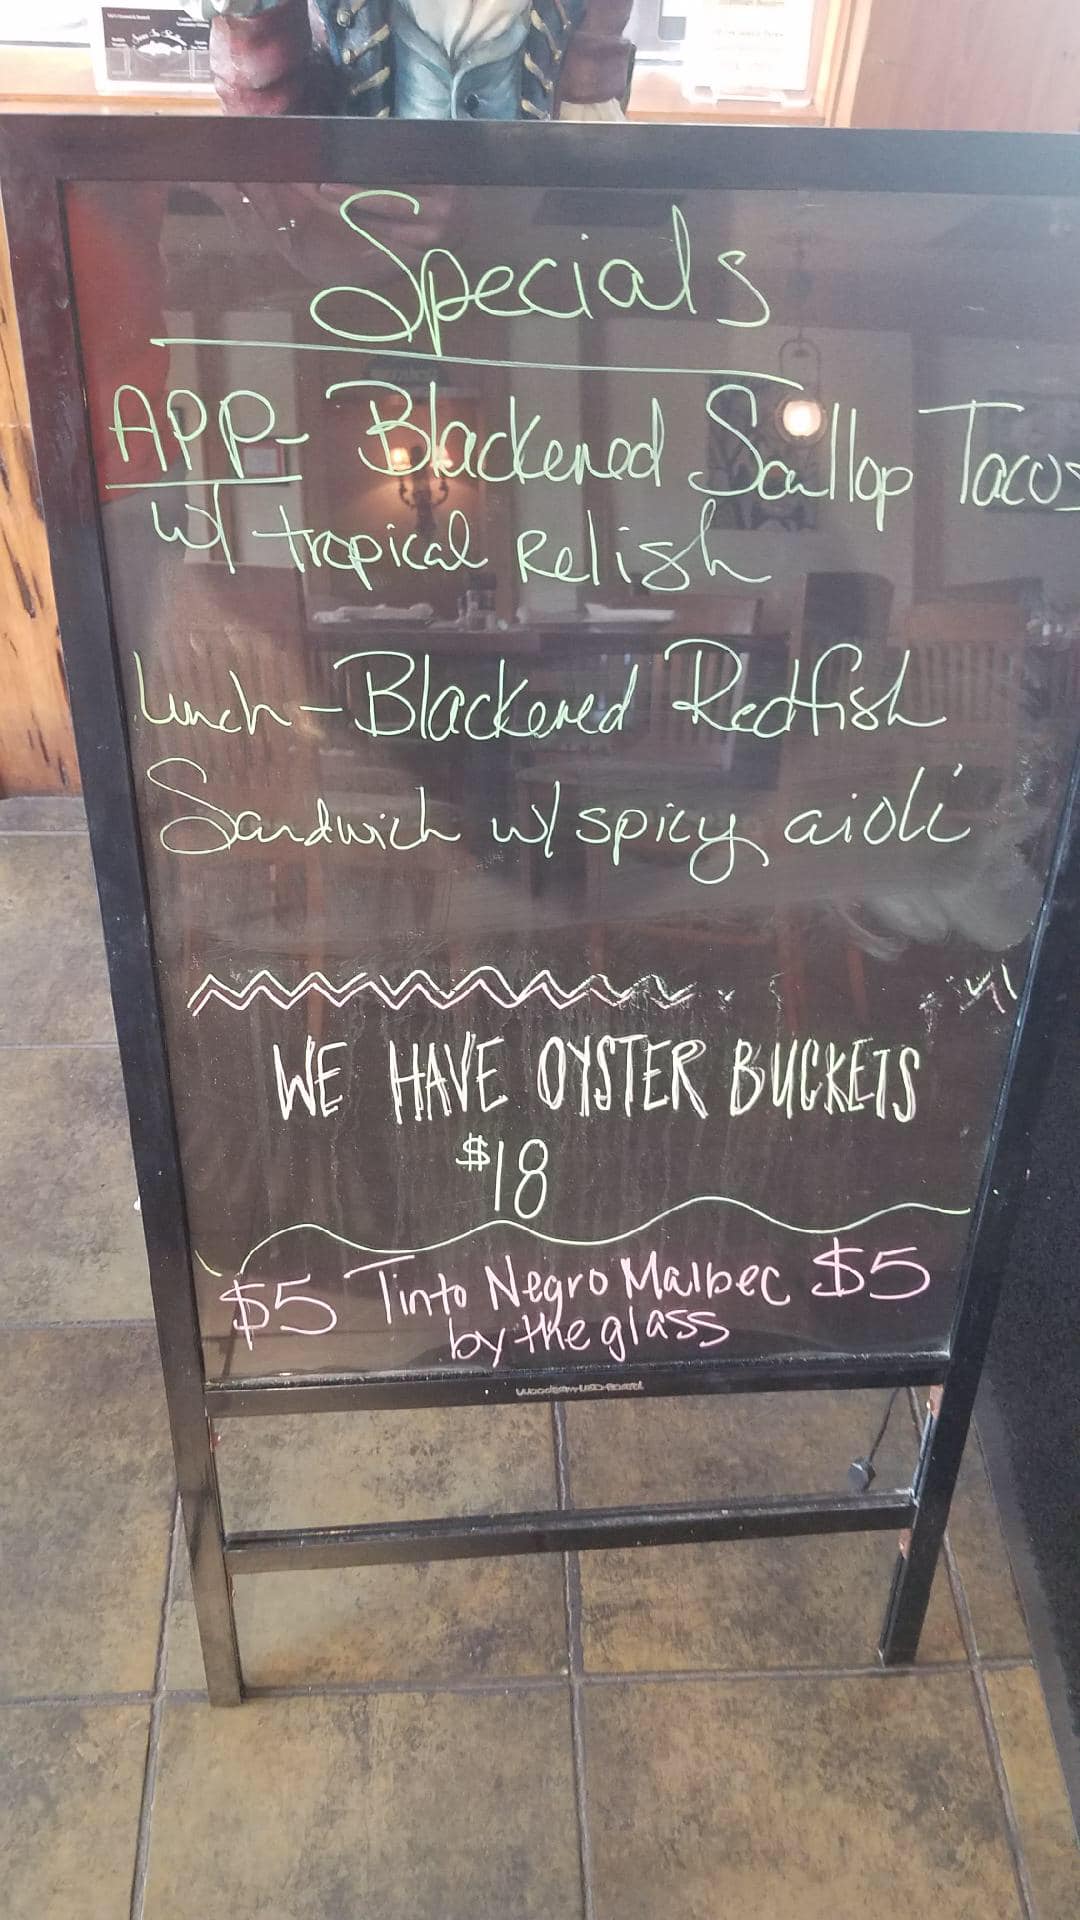 Specials
APP- Blackened Scallop Tacos
w/ tropical Relish
Lunch - Blackened Redfish
Sandwich w/ spicy aioli
WE HAVE OYSTER BUCKETS
$18
$5 Tinto Negro Malbec $5
by the glass